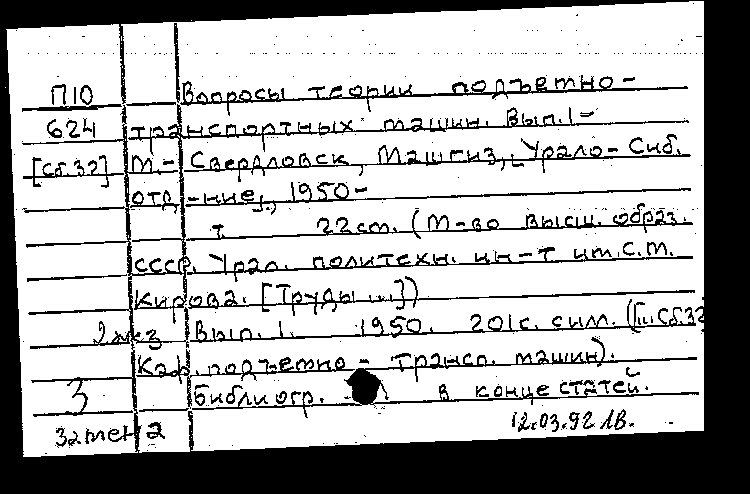 П10 Вопросы теории подъемно-
624 транспортных машин. Вып.1-
[Сб.32] М.- Свердловск, Машгиз, [Урало-Сиб.
отд-ние], 1950-
т 22см. (М-во высш. образ.
СССР. Урал. политехн. ин-т им. С.М.
Кирова. [Труды ...])
2 экз Вып. 1. 1950. 201с. с илл. ([Сб.32]
Каф. подъемно-трансп. машин).
3 Библиогр. в конце статей.
Замена 12.03.92 ЛВ.